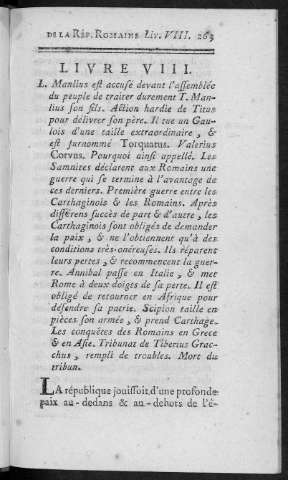 DE LA RÉP. ROMAINE Liv. VIII. 263
LIVRE VIII.
L. Manlius est accusé devant l'assemblée
du peuple de traiter durement T. Man-
lius son fils. Action hardie de Titus
pour délivrer son père. Il tue un Gau-
lois d'une taille extraordinaire, &
est surnommé Torquatus. Valerius
Corvus. Pourquoi ainsi appellé. Les
Samnites déclarent aux Romains une
guerre qui se termine à l'avantage de
ces derniers. Première guerre entre les
Carthaginois & les Romains. Après
différens succès de part & d'autre, les
Carthaginois sont obligés de demander
la paix, & ne l'obtiennent qu'à des
conditions très-onéreuses. Ils réparent
leurs pertes, & recommencent la guer-
re. Annibal passe en Italie, & met
Rome à deux doigts de sa perte. Il est
obligé de retourner en Afrique pour
défendre sa patrie. Scipion taille en
pièces son armée, & prend Carthage.
Les conquêtes des Romains en Grece
& en Asie. Tribunat de Tiberius Grac-
chus, rempli de troubles. Mort du
tribun.
LA république jouissoit d'une profonde
paix au-dedans & au-dehors de l'é-